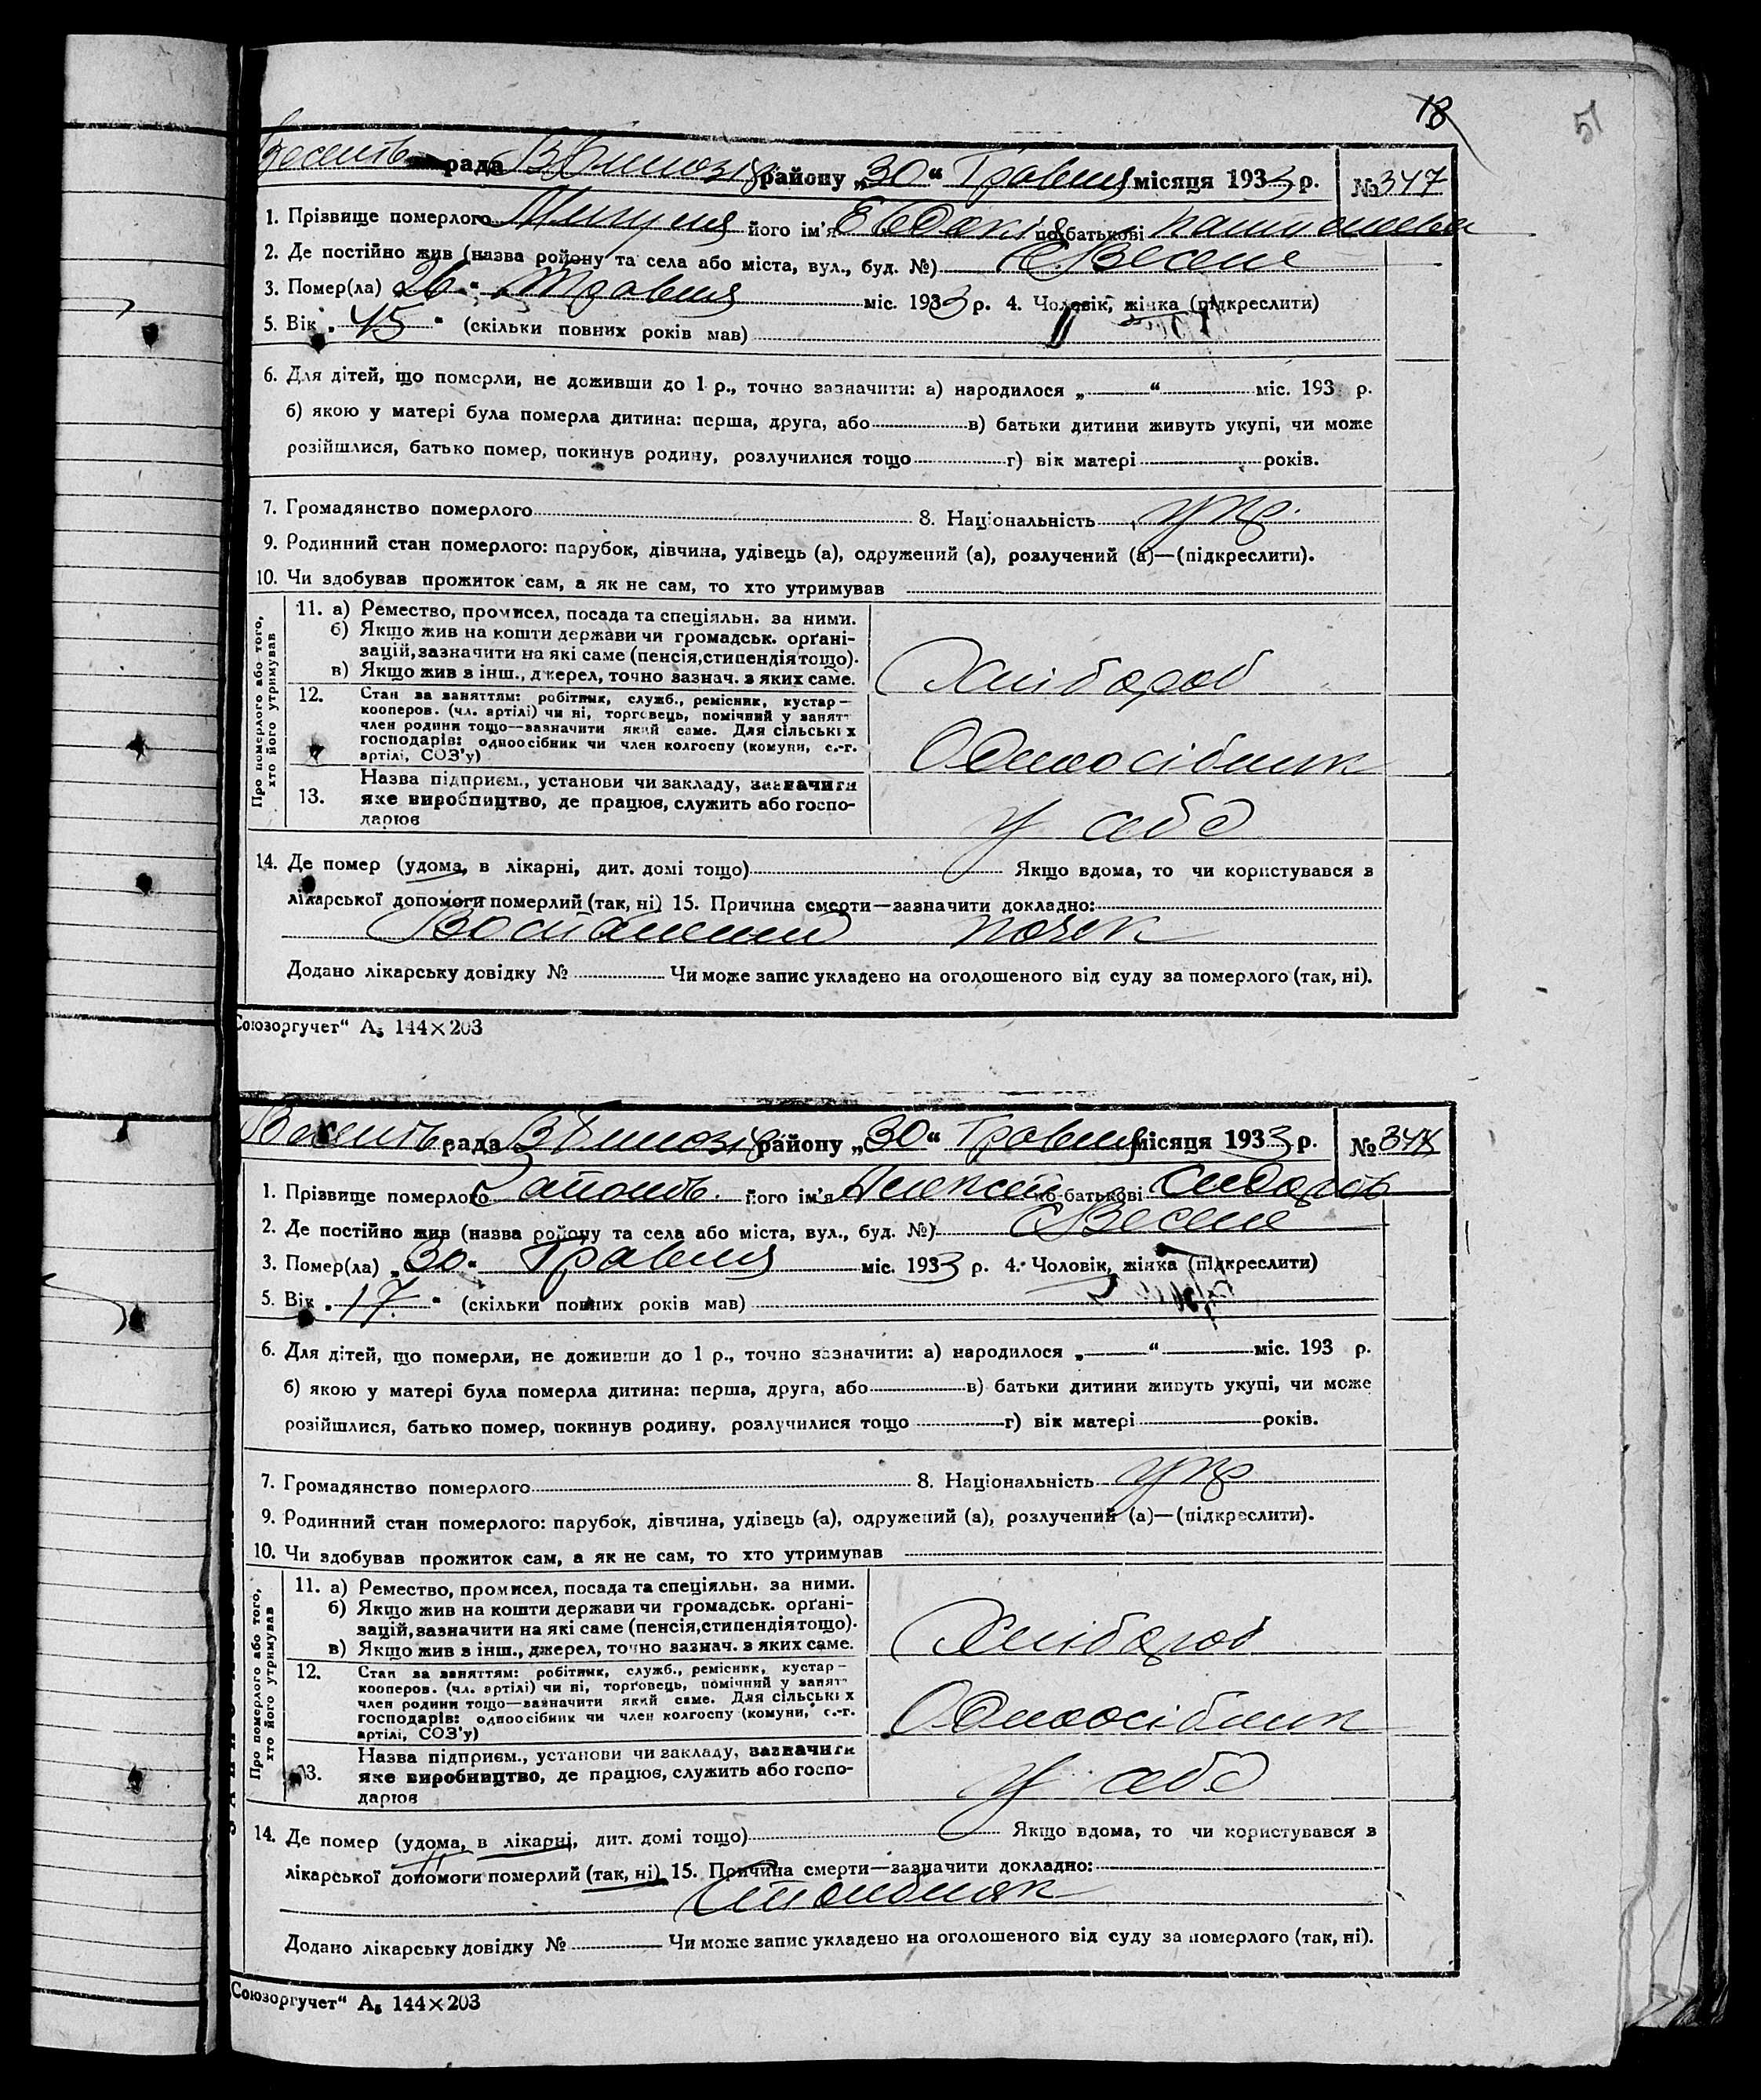 18
51
рада района „30“ Травня місяця 1933 р. №347
1. Прізвище померлого його ім'я Евдокія по батькові
2. Де постійно жив (назва району та села або міста, вул., буд. №) с Веселе
3. Помер(ла) „26“ Травня міс. 1933 р. 4. Чоловік, жінка (підкреслити)
5. Вік „45“ (скільки повних років мав)
6. Для дітей, що померли, не доживши до 1 р., точно зазначити: а) народилося „ “ міс. 193 р.
б) якою у матері була померла дитина: перша, друга, або в) батьки дитини живуть укупі, чи може
розійшлися, батько помер, покинув родину, розлучилися тощо г) вік матері років.
7. Громадянство померлого 8. Національність укр.
9. Родинний стан померлого: парубок, дівчина, удівець (а), одружений (а), розлучений (а)—(підкреслити).
10. Чи здобував прожиток сам, а як не сам, то хто утримував
Про померлого або того, хто його утримував
11. а) Ремество, промисел, посада та спеціяльн. за ними.
б) Якщо жив на кошти держави чи громадськ. орґані-
зацій, зазначити на які саме (пенсія, стипендія тощо).
в) Якщо жив з інш., джерел, точно зазнач. з яких саме.
Хлібороб
12. Стан за заняттям: робітник, служб., ремісник, кустар—
кооперов. (чл. артілі) чи ні, торговець, помічний у занятт
член родини тощо—зазначити який саме. Для сільських
господарів: одноосібник чи член колгоспу (комуни, с.-г.
артілі, СОЗ'у)
Одноосібник
13. Назва підприєм., установи чи закладу, зазначити
яке виробництво, де працює, служить або госпо-
дарює
У себе
14. Де помер (удома, в лікарні, дит. домі тощо) Якщо вдома, то чи користувався з
лікарської допомоги померлий (так, ні) 15. Причина смерти—зазначити докладно:
почек
Додано лікарську довідку № Чи може запис укладено на оголошеного від суду за померлого (так, ні).
Союзоргучет“ А5 144×203
рада району „30“ Травня місяця 1933 р. №
1. Прізвище померлого його ім'я Алексей по батькові Сидоров
2. Де постійно жив (назва району та села або міста, вул., буд. №) с Веселе
3. Помер(ла) „30“ Травня міс. 1933 р. 4. Чоловік, жінка (підкреслити)
5. Вік „17“ (скільки повних років мав)
6. Для дітей, що померли, не доживши до 1 р., точно зазначити: а) народилося „ “ міс. 193 р.
б) якою у матері була померла дитина: перша, друга, або в) батьки дитини живуть укупі, чи може
розійшлися, батько помер, покинув родину, розлучилися тощо г) вік матері років.
7. Громадянство померлого 8. Національність укр
9. Родинний стан померлого: парубок, дівчина, удівець (а), одружений (а), розлучений (а)—(підкреслити).
10. Чи здобував прожиток сам, а як не сам, то хто утримував
Про померлого або того, хто його утримував
11. а) Ремество, промисел, посада та спеціяльн. за ними.
б) Якщо жив на кошти держави чи громадськ. орґані-
зацій, зазначити на які саме (пенсія, стипендія тощо).
в) Якщо жив з інш., джерел, точно зазнач. з яких саме.
Хлібороб
12. Стан за заняттям: робітник, служб., ремісник, кустар—
кооперов. (чл. артілі) чи ні, торговець, помічний у занятт
член родини тощо—зазначити який саме. Для сільських
господарів: одноосібник чи член колгоспу (комуни, с.-г.
артілі, СОЗ'у)
Одноосібник
13. Назва підприєм., установи чи закладу, зазначити
яке виробництво, де працює, служить або госпо-
дарює
У себе
14. Де помер (удома, в лікарні, дит. домі тощо) Якщо вдома, то чи користувався з
лікарської допомоги померлий (так, ні) 15. Причина смерти—зазначити докладно:
Столбняк
Додано лікарську довідку № Чи може запис укладено на оголошеного від суду за померлого (так, ні).
Союзоргучет“ А5 144×203